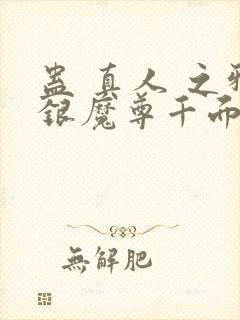 蛊真人之邪
银魔尊千而
無解肥